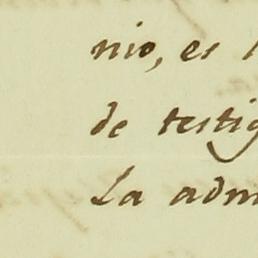 nio, es
de testig
La adm